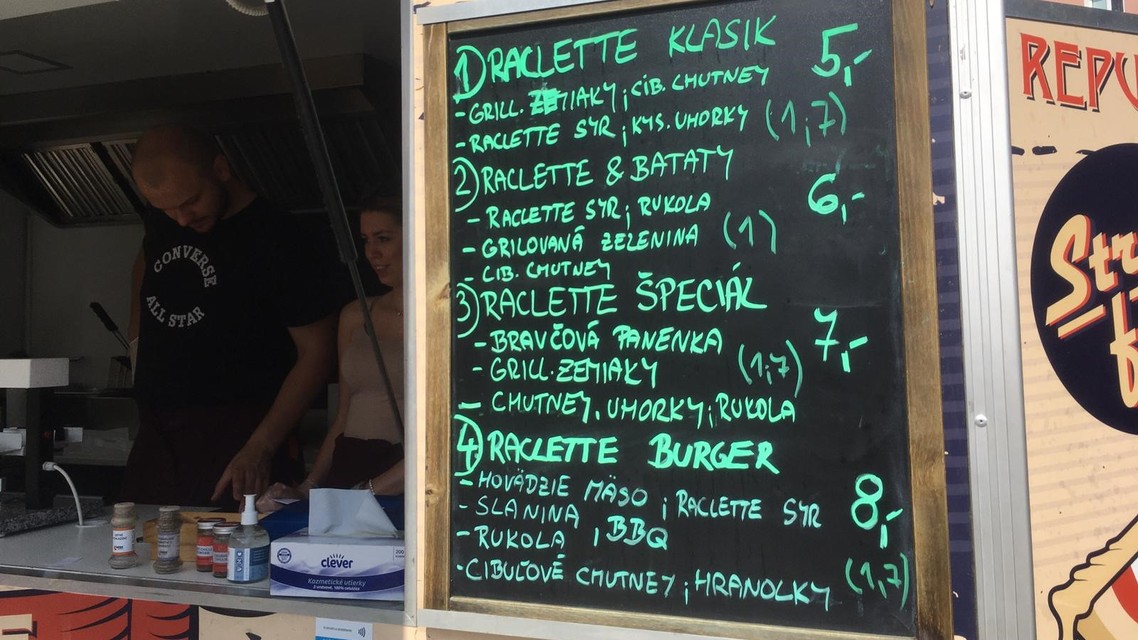 1) RACLETTE KLASIK 5,-
- GRILL. ZEMIAKY, CIB. CHUTNEY
- RACLETTE SYR, KYS. UHORKY (1,7)
2) RACLETTE & BATATY 6,-
- RACLETTE SYR, RUKOLA
- GRILOVANÁ ZELENINA (1)
- CIB. CHUTNEY
3) RACLETTE ŠPECIÁL 7,-
- BRAVČOVÁ PANENKA
- GRILL. ZEMIAKY (1,7)
- CHUTNEY, UHORKY, RUKOLA
4) RACLETTE BURGER 8,-
- HOVÄDZIE MÄSO, RACLETTE SYR
- SLANINA
- RUKOLA, BBQ
- CIBUĽOVÉ CHUTNEY, HRANOLKY (1,7)
CONVERSE
ALL STAR
clever
Kozmetické utierky
REPU
Str
f